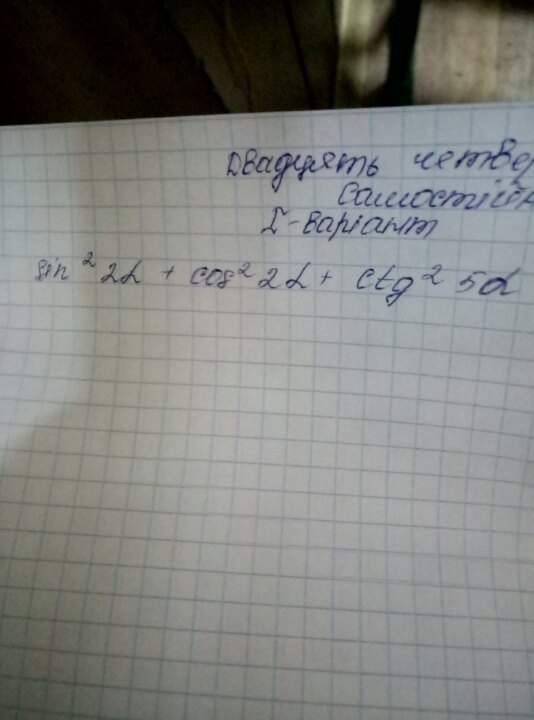 Двадцять четвер
Самостійн
I-варіант
sin² 2α + cos² 2α + ctg² 5α